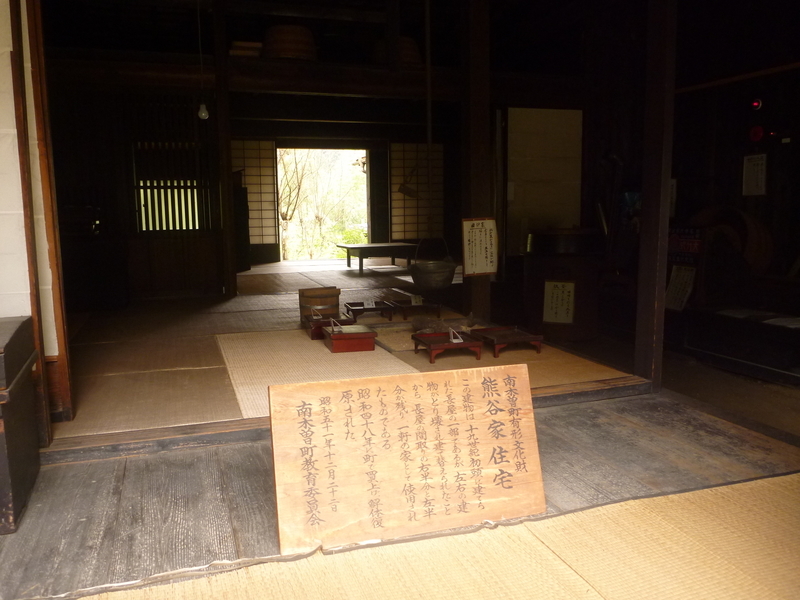 南木曽町有形文化財
熊谷家住宅
この建物は十九世紀初頭に建てら
れた長屋の一部であるが左右の建
物がとり壊され建て替えられたこと
から長屋の間取りの右半分と左半
分が残り一軒の家として使用され
たものである
昭和四十八年に町で買上げ解体復
原された
昭和五十一年十二月二十二日
南木曽町教育委員会